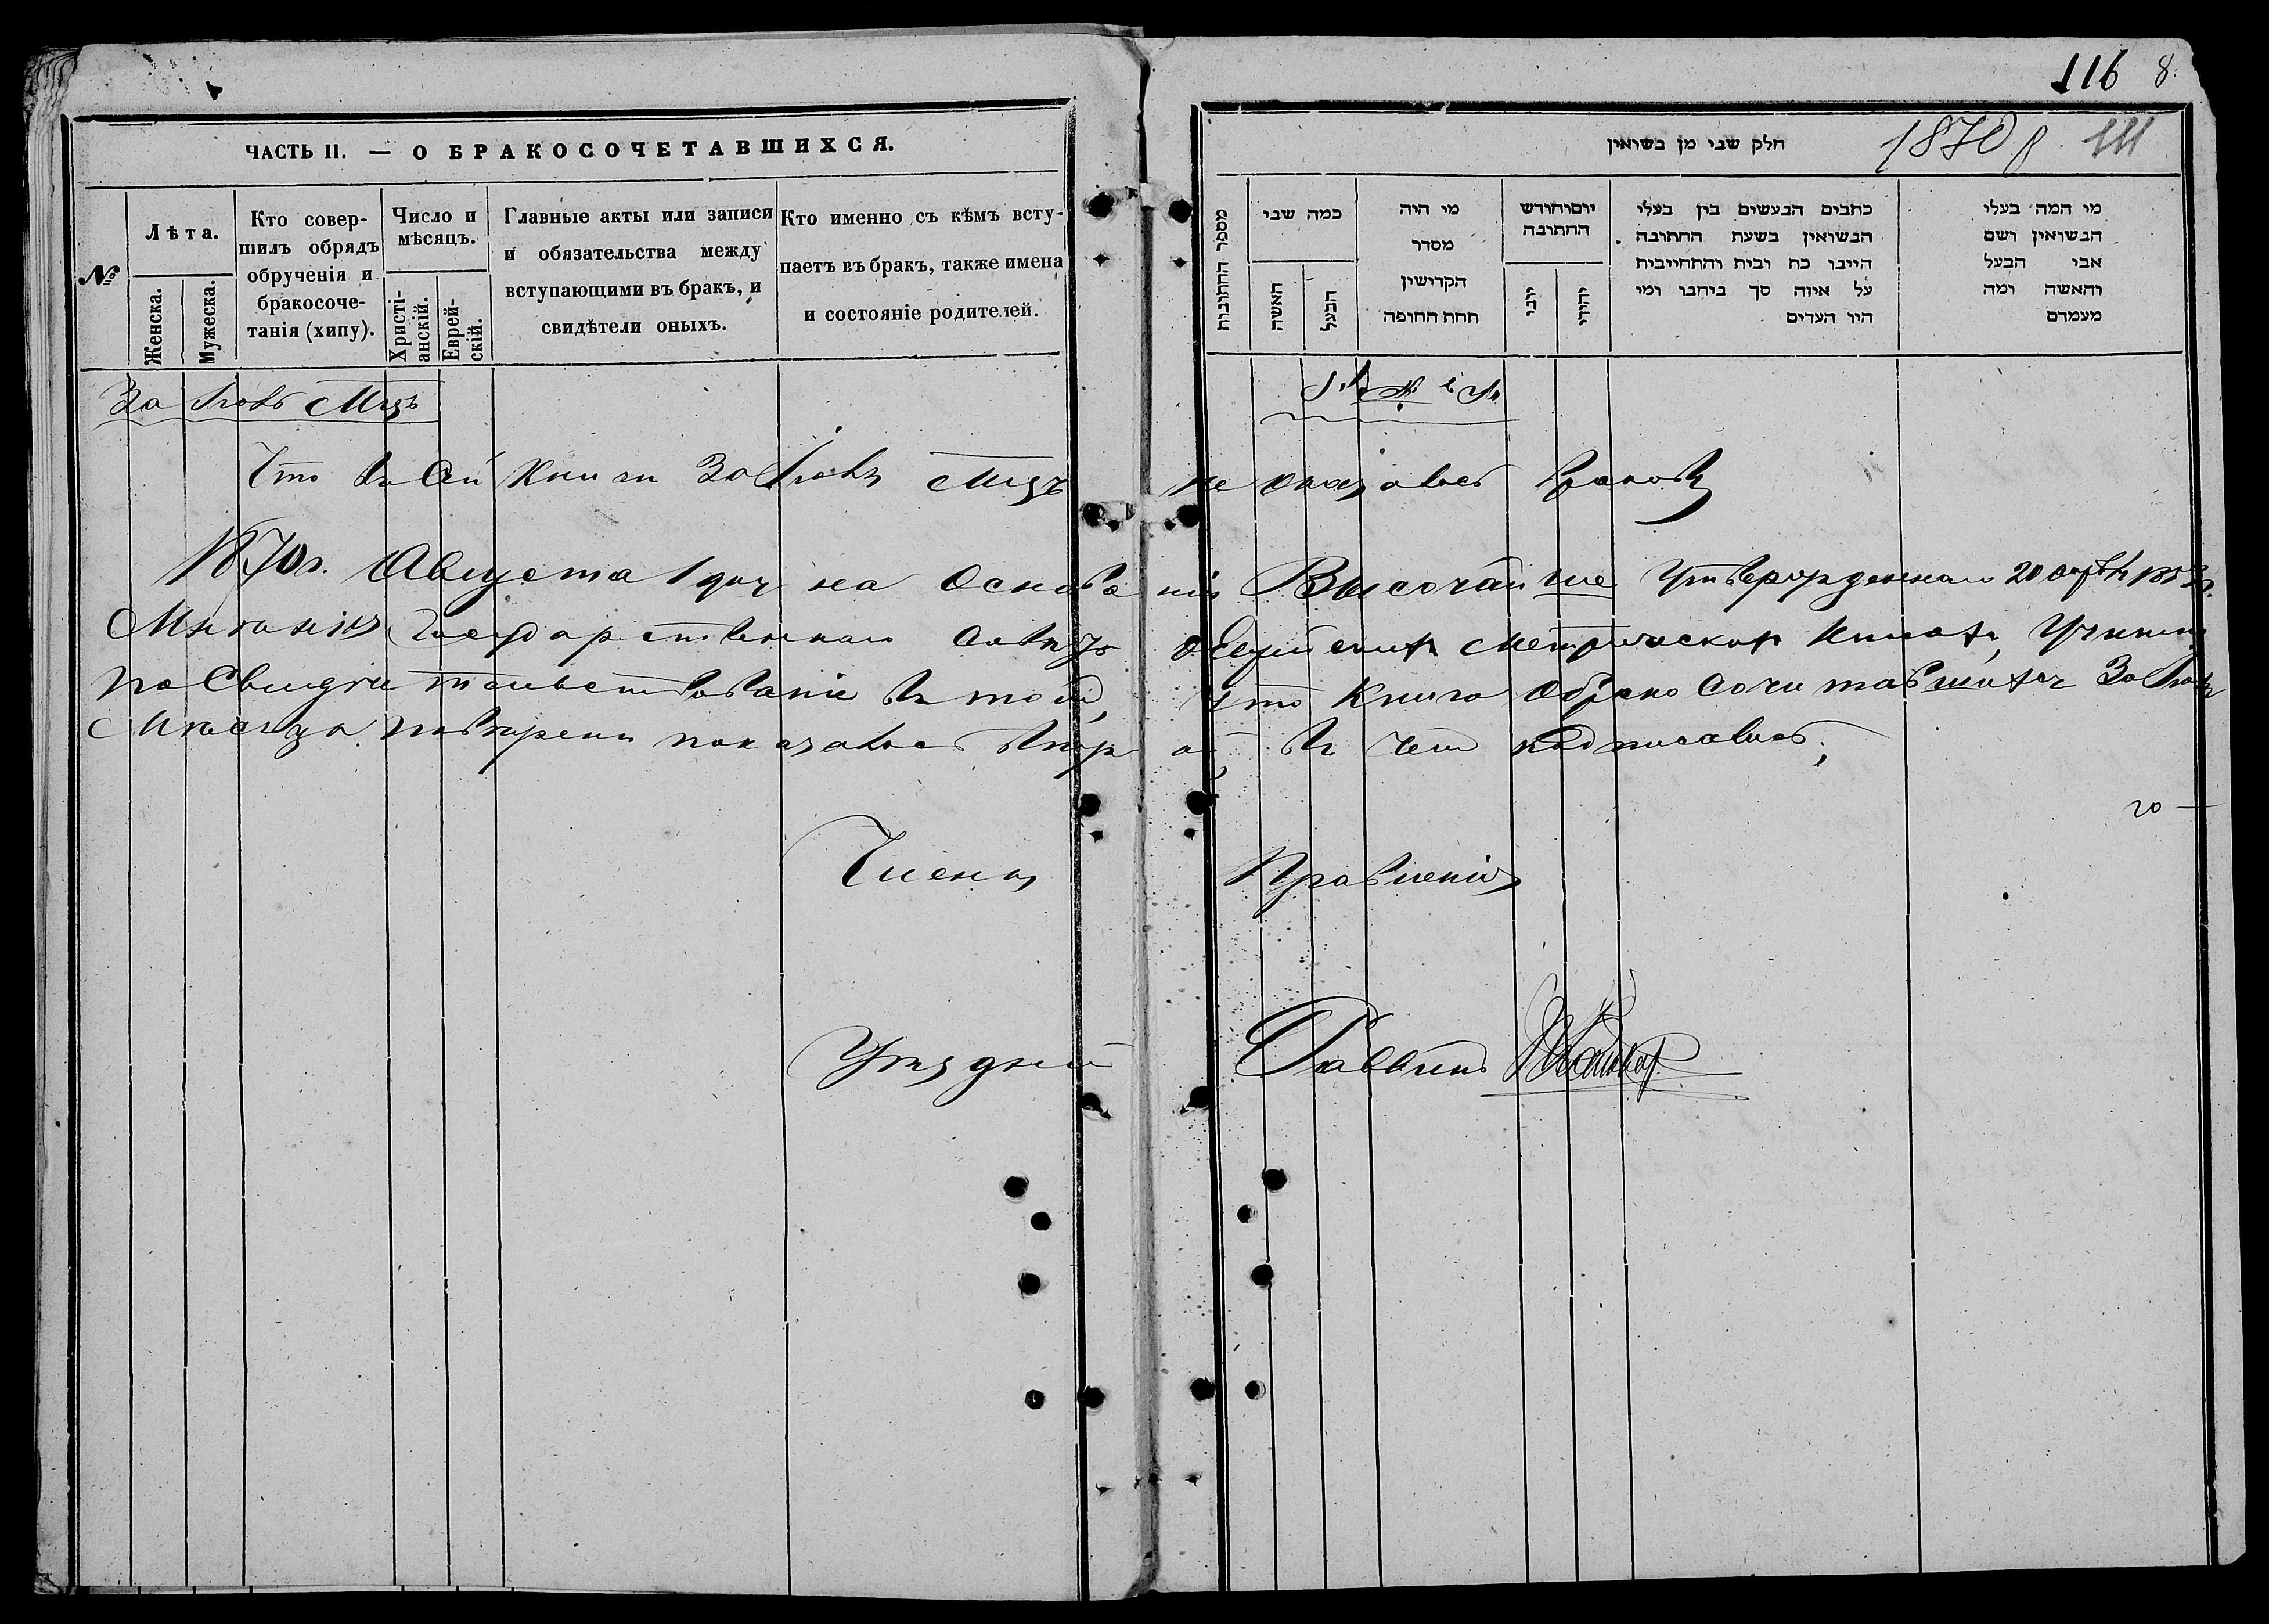 116 8.
ЧАСТЬ II. — О БРАКОСОЧЕТАВШИХСЯ.
№
Лѣта.
Женска.
Мужеска.
Кто совер-
шилъ обрядъ
обрученія и
бракосоче-
танія (хипу).
Число и
мѣсяцъ.
Христі-
анскій.
Еврей-
скій.
Главные акты или записи
и обязательства между
вступающими въ бракъ, и
свидѣтели оныхъ.
Кто именно съ кѣмъ всту-
паетъ въ бракъ, также имена
и состояніе родителей.
חלק שני מן נשואין
1870
מספר החתונות
כמה שני
האשה
הבעל
מי היה
מסדר
הקדישין
תחת החופה
יום וחודש
החתונה
יוני
יהודי
כתבים הנעשים בין בעלי
הנשואין בשעת החתונה
היינו כת ובית והתחייבית
על איזה סך ביחבו ומי
היו העדים
מי המה בעלי
הנשואין ושם
אבי הבעל
והאשה ומה
מעמדם
За Іюль Мцъ
Что въ Сей Книги За Іюль Мцъ не оказалось браковъ
1870 г. Августа 1 дня на Основаніи Высочайше Утвержденнаго 20
Мнѣнія Государственнаго Совѣта о Еврейскихъ Метрическихъ Книгахъ,
По Свидѣтельствованіи въ той, что Книга о бракосочитавшихся За Іюль
Мѣсяцъ показалось въ чемъ подписались;
Члены Правленія
Раввинъ